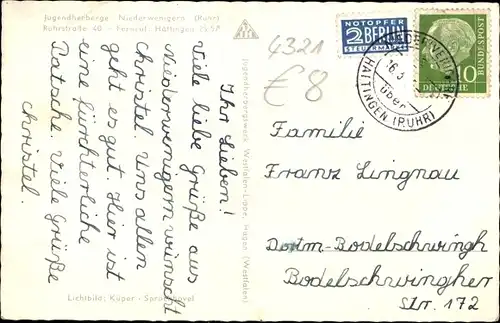 Jugendherberge Niederwenigern (Ruhr)
Ruhrstraße 40 - Fernruf: Hattingen 2657
Ihr Lieben!
Viele liebe Grüße aus
Niederwenigern wünscht
Christel. Uns allen
geht es gut. Hier ist
eine fürchterliche
Patsche. Viele Grüße
Christel.
Lichtbild: Küper - Sprockhövel
Jugendherbergswerk Westfalen-Lippe, Hagen (Westfalen)
4321
€ 8
NOTOPFER
2 BERLIN
STEUERMARKE
DEUTSCHE
BUNDESPOST
10
über
HATTINGEN (RUHR)
Familie
Franz Lingnau
Dortm-Bodelschwingh
Bodelschwingher
Str. 172